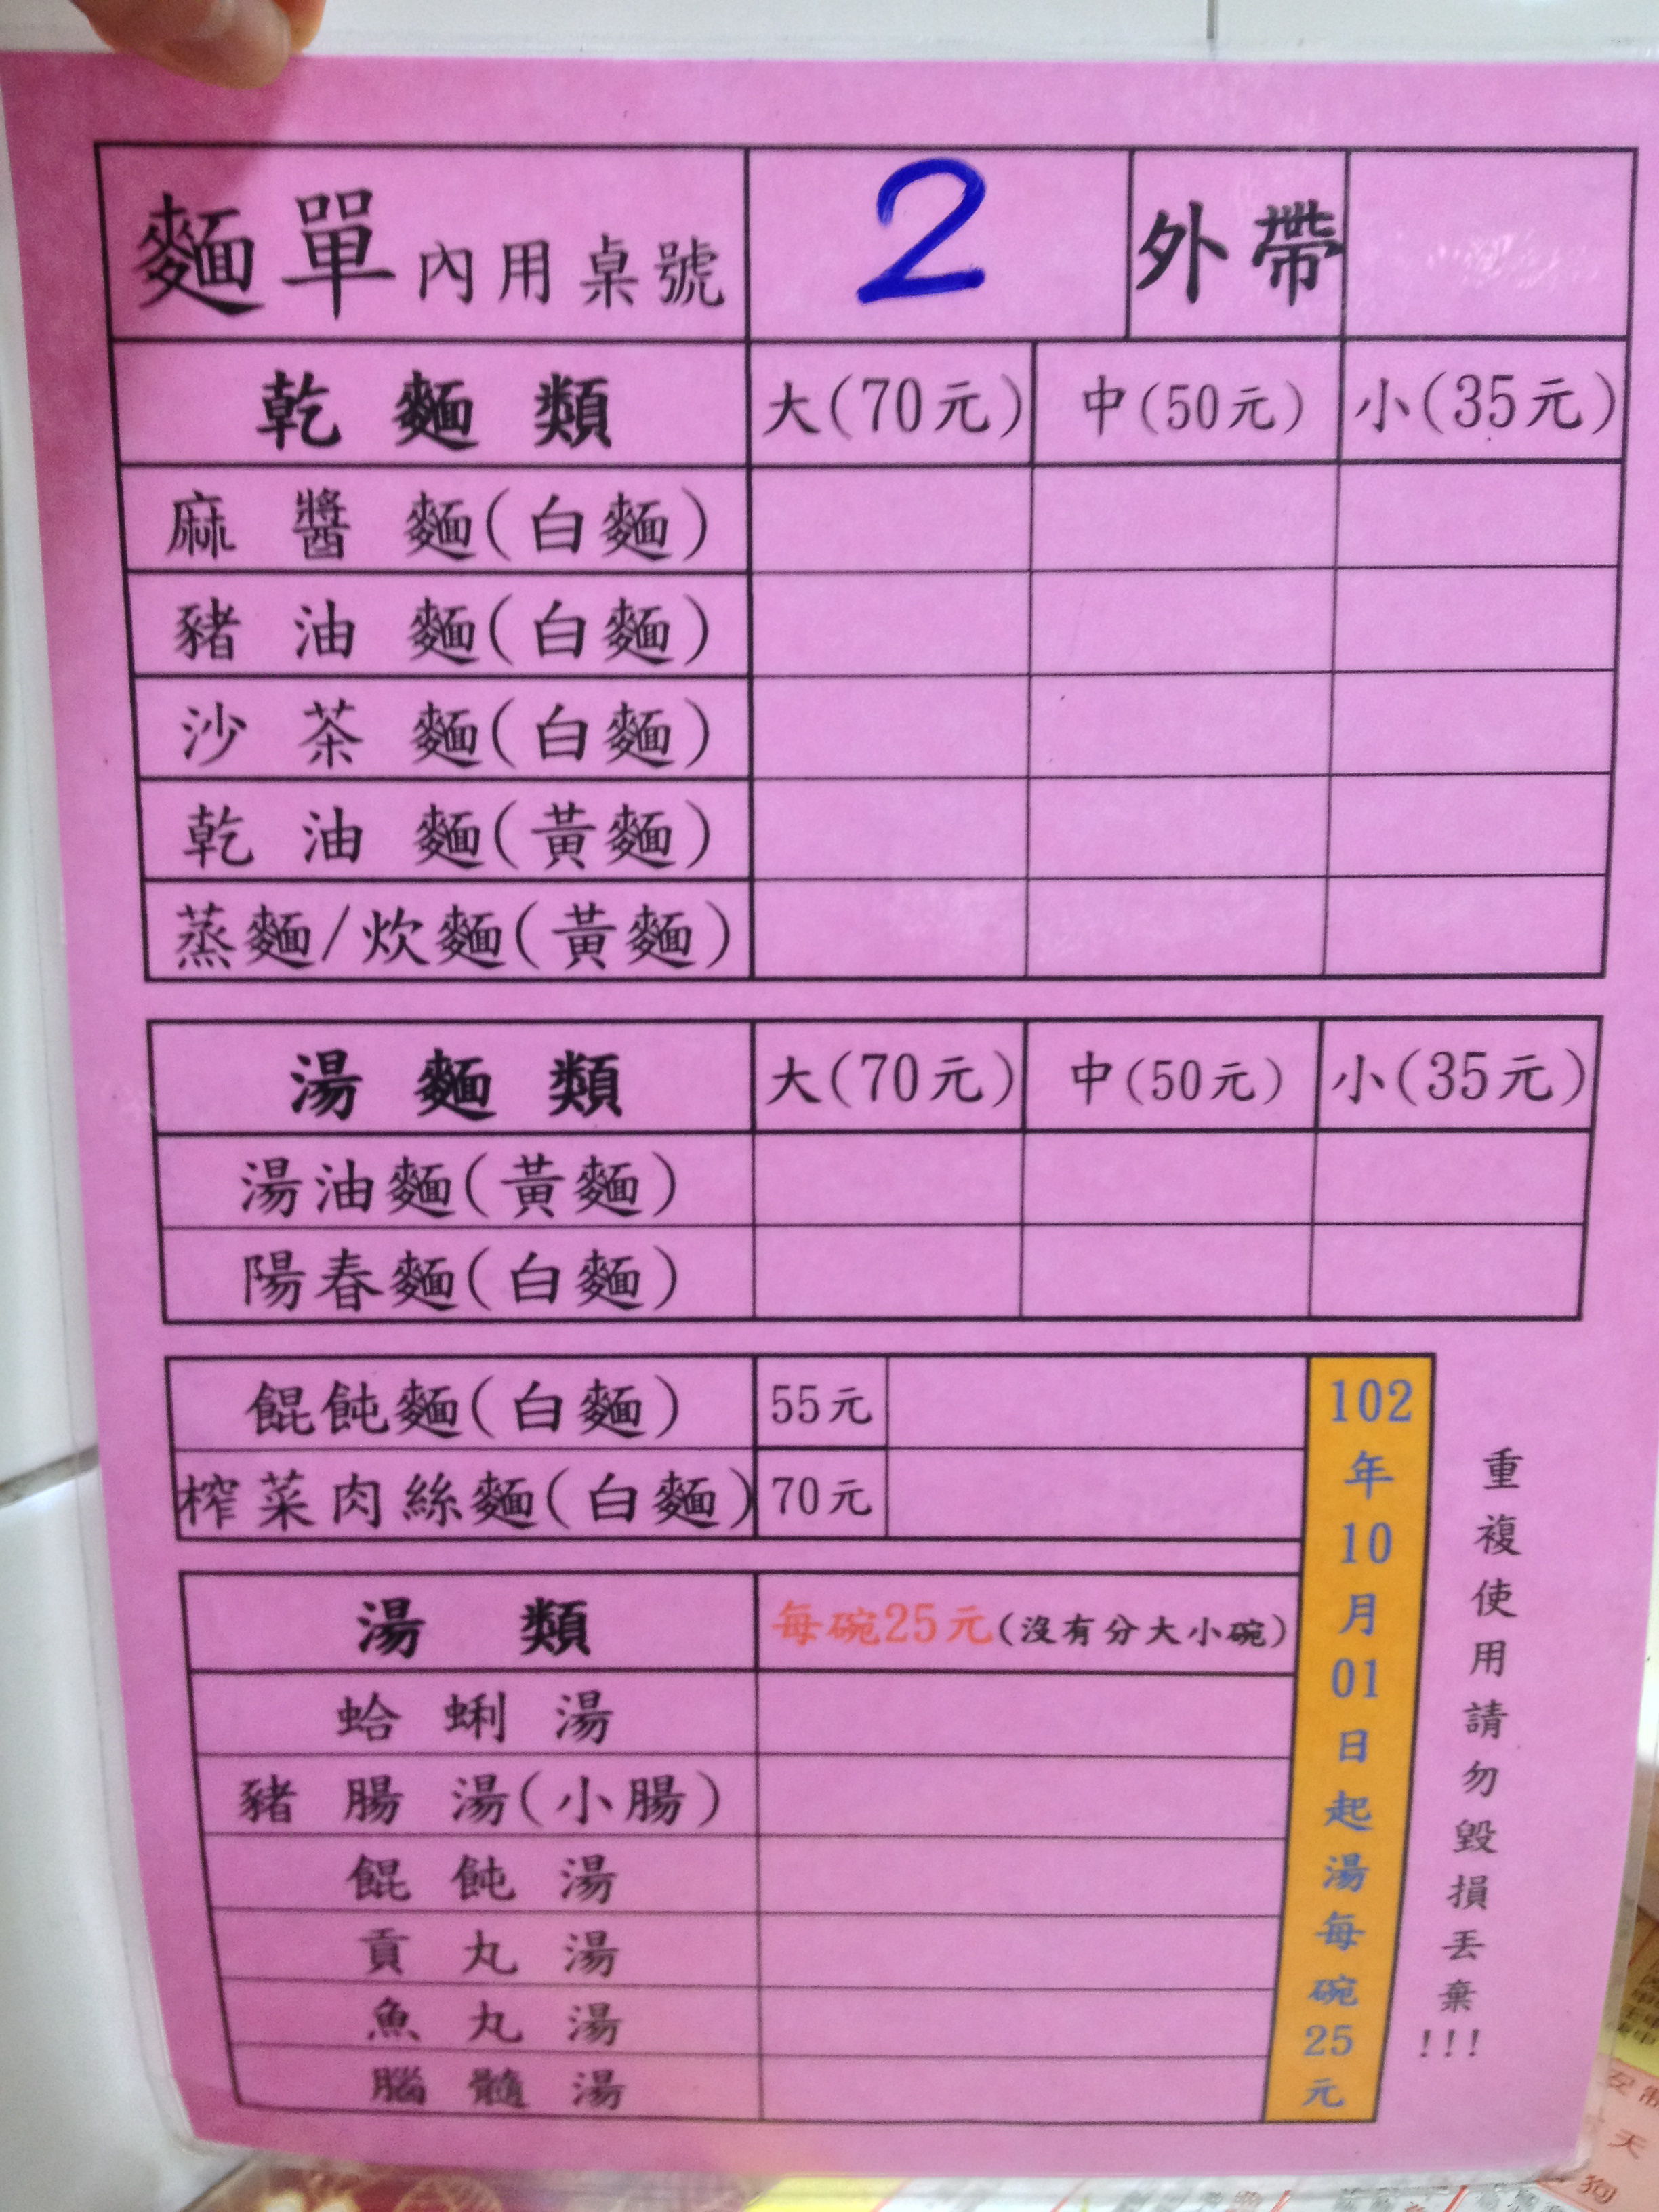 麵單內用桌號 2 外帶
乾麵類 大(70元) 中(50元) 小(35元)
麻醬麵(白麵)
豬油麵(白麵)
沙茶麵(白麵)
乾油麵(黃麵)
蒸麵/炊麵(黃麵)
湯麵類 大(70元) 中(50元) 小(35元)
湯油麵(黃麵)
陽春麵(白麵)
餛飩麵(白麵) 55元
榨菜肉絲麵(白麵) 70元
湯類 每碗25元(沒有分大小碗)
蛤蜊湯
豬腸湯(小腸)
餛飩湯
貢丸湯
魚丸湯
腦髓湯
102年10月01日起湯每碗25元
重複使用請勿毀損丟棄!!!